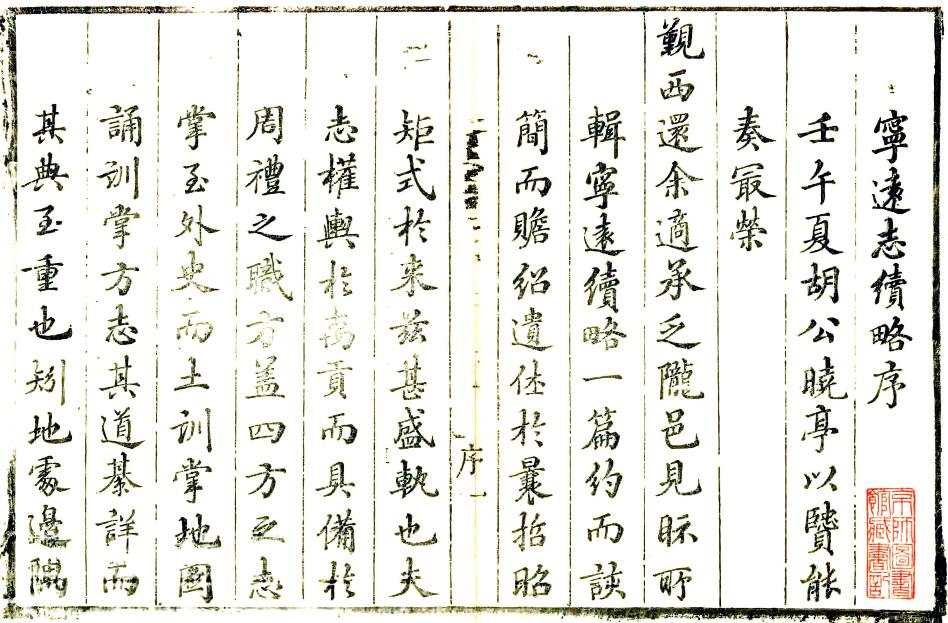 寧遠志續略序
壬午夏胡公曉亭以賢能
奏最榮
覲西還余適承乏隴邑見眎所
輯寧遠續略一篇約而該
簡而贍紹遺休於曩哲昭
序
矩式於来兹甚盛軌也夫
志權輿於禹貢而具備於
周禮之職方盖四方之志
掌至外史而土训掌地圖
誦训掌方志其道綦詳而
其典至重也矧地處邊隅